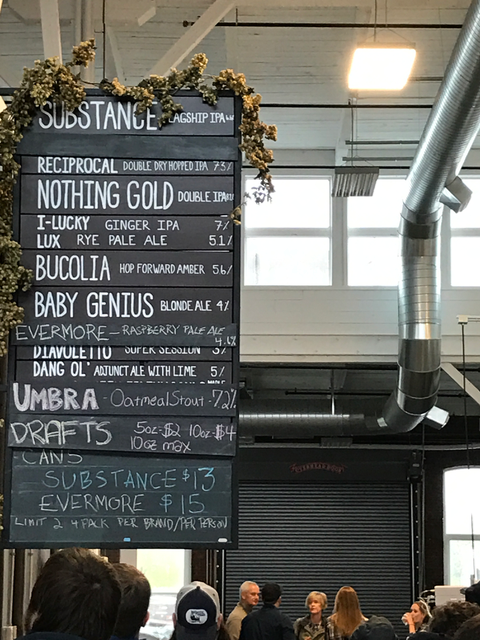 SUBSTANCE FLAGSHIP IPA
RECIPROCAL DOUBLE DRY HOPPED IPA 7.3%
NOTHING GOLD DOUBLE IPA
I-LUCKY GINGER IPA 7%
LUX RYE PALE ALE 5.1%
BUCOLIA HOP FORWARD AMBER 5.6%
BABY GENIUS BLONDE ALE 4%
EVERMORE - RASPBERRY PALE ALE
4.6%
DIAVOLETTO SUPER SESSION 3%
DANG OL' ADJUNCT ALE WITH LIME 5%
UMBRA - Oatmeal Stout - 7.2%
DRAFTS 5oz-$2 10oz-$4
10oz max
CANS
SUBSTANCE $13
EVERMORE $15
LIMIT 2 4 PACK PER BRAND/PER PERSON